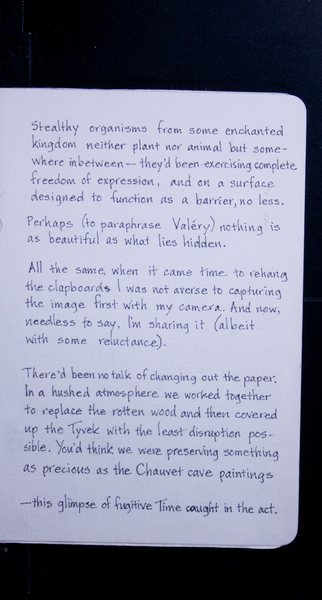 Stealthy organisms from some enchanted
kingdom neither plant nor animal but some-
where inbetween — they'd been exercising complete
freedom of expression, and on a surface
designed to function as a barrier, no less.
Perhaps (to paraphrase Valéry) nothing is
as beautiful as what lies hidden.
All the same, when it came time to rehang
the clapboards I was not averse to capturing
the image first with my camera. And now,
needless to say, I'm sharing it (albeit
with some reluctance).
There'd been no talk of changing out the paper.
In a hushed atmosphere we worked together
to replace the rotten wood and then covered
up the Tyvek with the least disruption pos-
sible. You'd think we were preserving something
as precious as the Chauvet cave paintings
—this glimpse of fugitive Time caught in the act.